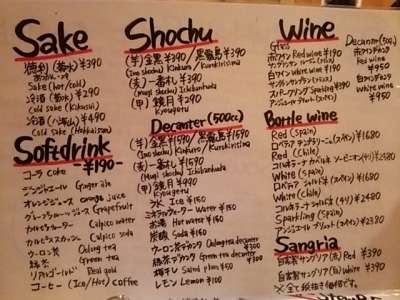 Sake
徳利(番水) ¥290
Sake (hot/cold)
冷酒 ¥290
Cold sake (Kikusui)
冷酒(八海山) ¥490
Cold sake (Hakkaisan)
Softdrink
-¥190-
コーラ Coke
ジンジャエール Ginger ale
オレンジジュース orange juice
グレープフルーツジュース Grapefruit
カルピスウォーター Calpico water
カルピスソーダ Calpico soda
ウーロン茶 Oolong tea
緑茶 Green tea
リアルゴールド Real gold
コーヒー (Ice/Hot) Coffee
Shochu
(芋) 金黒 ¥390/黒霧島 ¥390
(Imo shochu) Kinkuro/Kurokirisima
(麦) 一番札 ¥390
(Mugi shochu) Ichibanhuda
(甲) 鏡月 ¥290
Kyougetu
Decanter (500cc)
(芋) 金黒 ¥1590/黒霧島 ¥1590
(Imo shochu) Kinkuro/Kurokirisima
(麦) 一番札 ¥1590
(Mugi shochu) Ichibanhuda
(甲) 鏡月 ¥990
Kyougetu
氷 Ice ¥150
ミネラルウォーター Water ¥150
お湯 Hot water ¥150
炭酸 Soda ¥150
ウーロン茶デカンタ Oolong tea decanter ¥300
緑茶デカンタ Green tea decanter ¥300
梅干し ¥50
レモン Lemon ¥100
Wine
Glass
赤ワイン Red wine ¥190
白ワイン White wine ¥190
スパークリング Sparkling ¥390
Decanter (500cc)
赤ワインデカンタ
Red wine
¥950
白ワインデカンタ
White wine
¥950
Bottle wine
Red (Spain)
¥1680
Red (Chile)
¥2480
White (Spain)
¥1680
White (Chile)
¥2480
Sparkling (Spain)
¥2380
Sangria
自家製サングリア(赤) Red ¥390
自家製サングリア(白) White ¥390
※全て税抜き価格です。